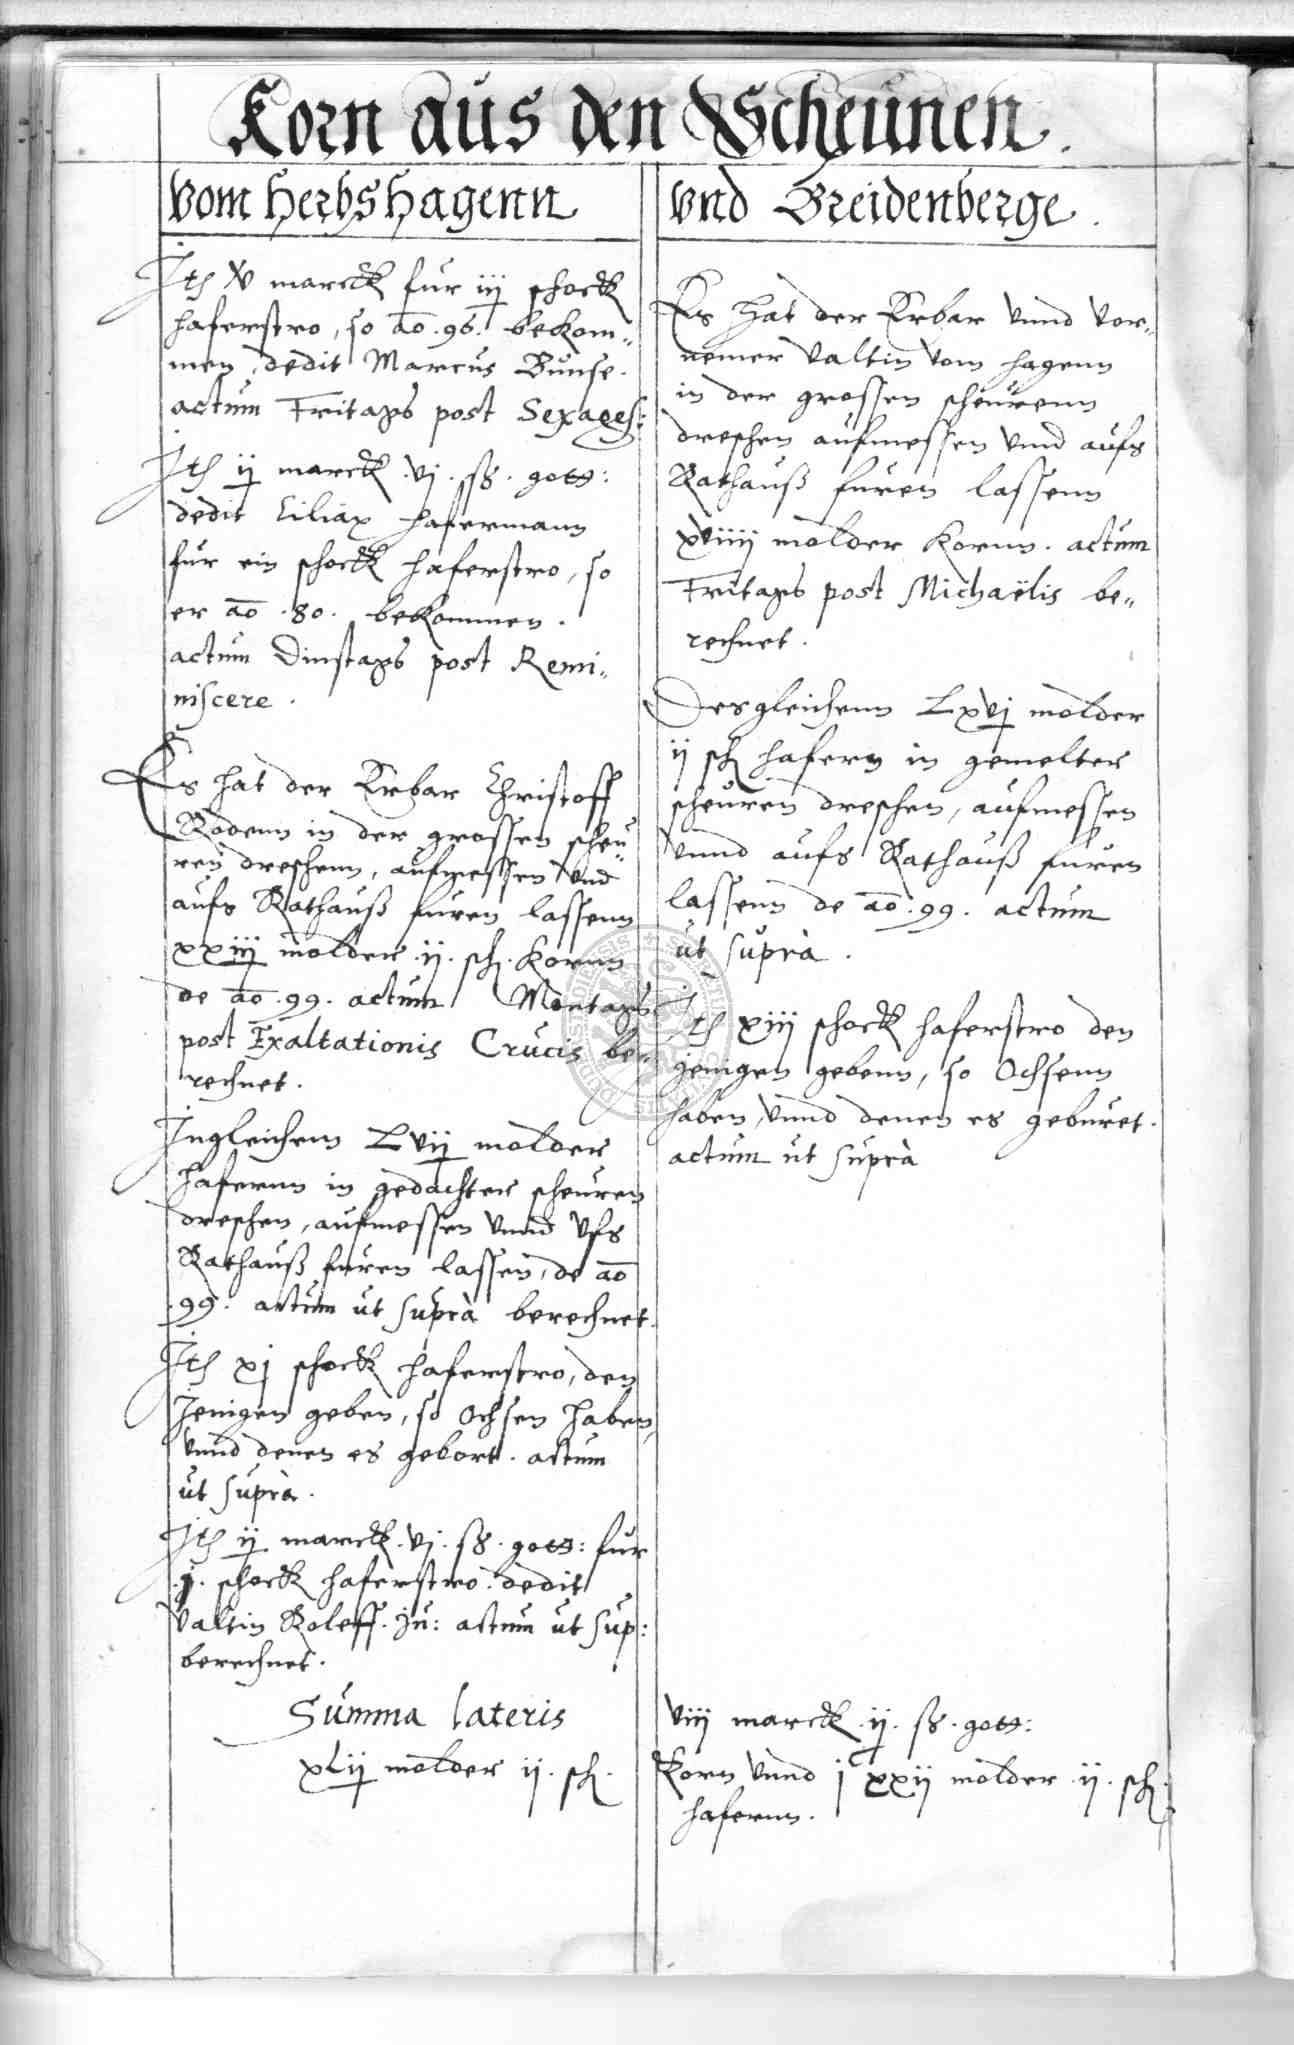 Korn aus den Scheunen.
vom Herbshagenn
Jtem v marck fur iij schock
haferstro, so ao. 96. bekom„
men, dedit Marcus Bunse.
actum Fritags post Sexages:
Jtem ij marck .vj. ß. gott:
dedit Ciliax Hafermann
fur ein schock haferstro, so
er ao .80. bekommen.
actum Dinstags post Remi„
niscere.
Es hat der Erbar Christoff
Rodenn in der grossen scheu„
ren dreschenn, aufmessen vnd
aufs Rathauß furen lassenn
xxiij molder .ij. sch. Kornn
de ao .99. actum Montags
post Exaltationis Crucis be„
rechnet.
Jngleichenn Lvij molder
hafernn in gedachter scheuren
dreschen, aufmessen vnnd vfs
Rathauß furen lassen, de ao
.99. actum ut suprà berechnet.
Jtem xj schock haferstro, den
jenigen geben, so Ochsen haben,
vnnd denen es gebort. actum
ut suprà.
Jtem ij marck .vj. ß. gott: fur
.j. schock haferstro. dedit
Valtin Roleff. Ju: actum ut sup:
berechnet.
Summa lateris
xLij molder ij. sch.
vnd Breidenberge.
Es hat der Erbar vnnd vor„
nemer Valtin vom Hagenn
in der grossen scheurenn
dreschen aufmessen vnnd aufs
Rathauß furen lassenn
xviiij molder Kornn. actum
Fritags post Michaëlis be„
rechnet.
Desgleichenn Lxvj molder
ij sch hafern in gemelter
scheuren dreschen, aufmessen
vnnd aufs Rathauß furen
lassenn de ao .99. actum
ut suprà.
Jtem xiij schock haferstro den
jenigen gebenn, so Ochsenn
haben, vnnd denen es geburet.
actum ut suprà
viij marck .ij. ß. gott:
Korn vnnd jC xxij molder .ij. sch.
hafernn.